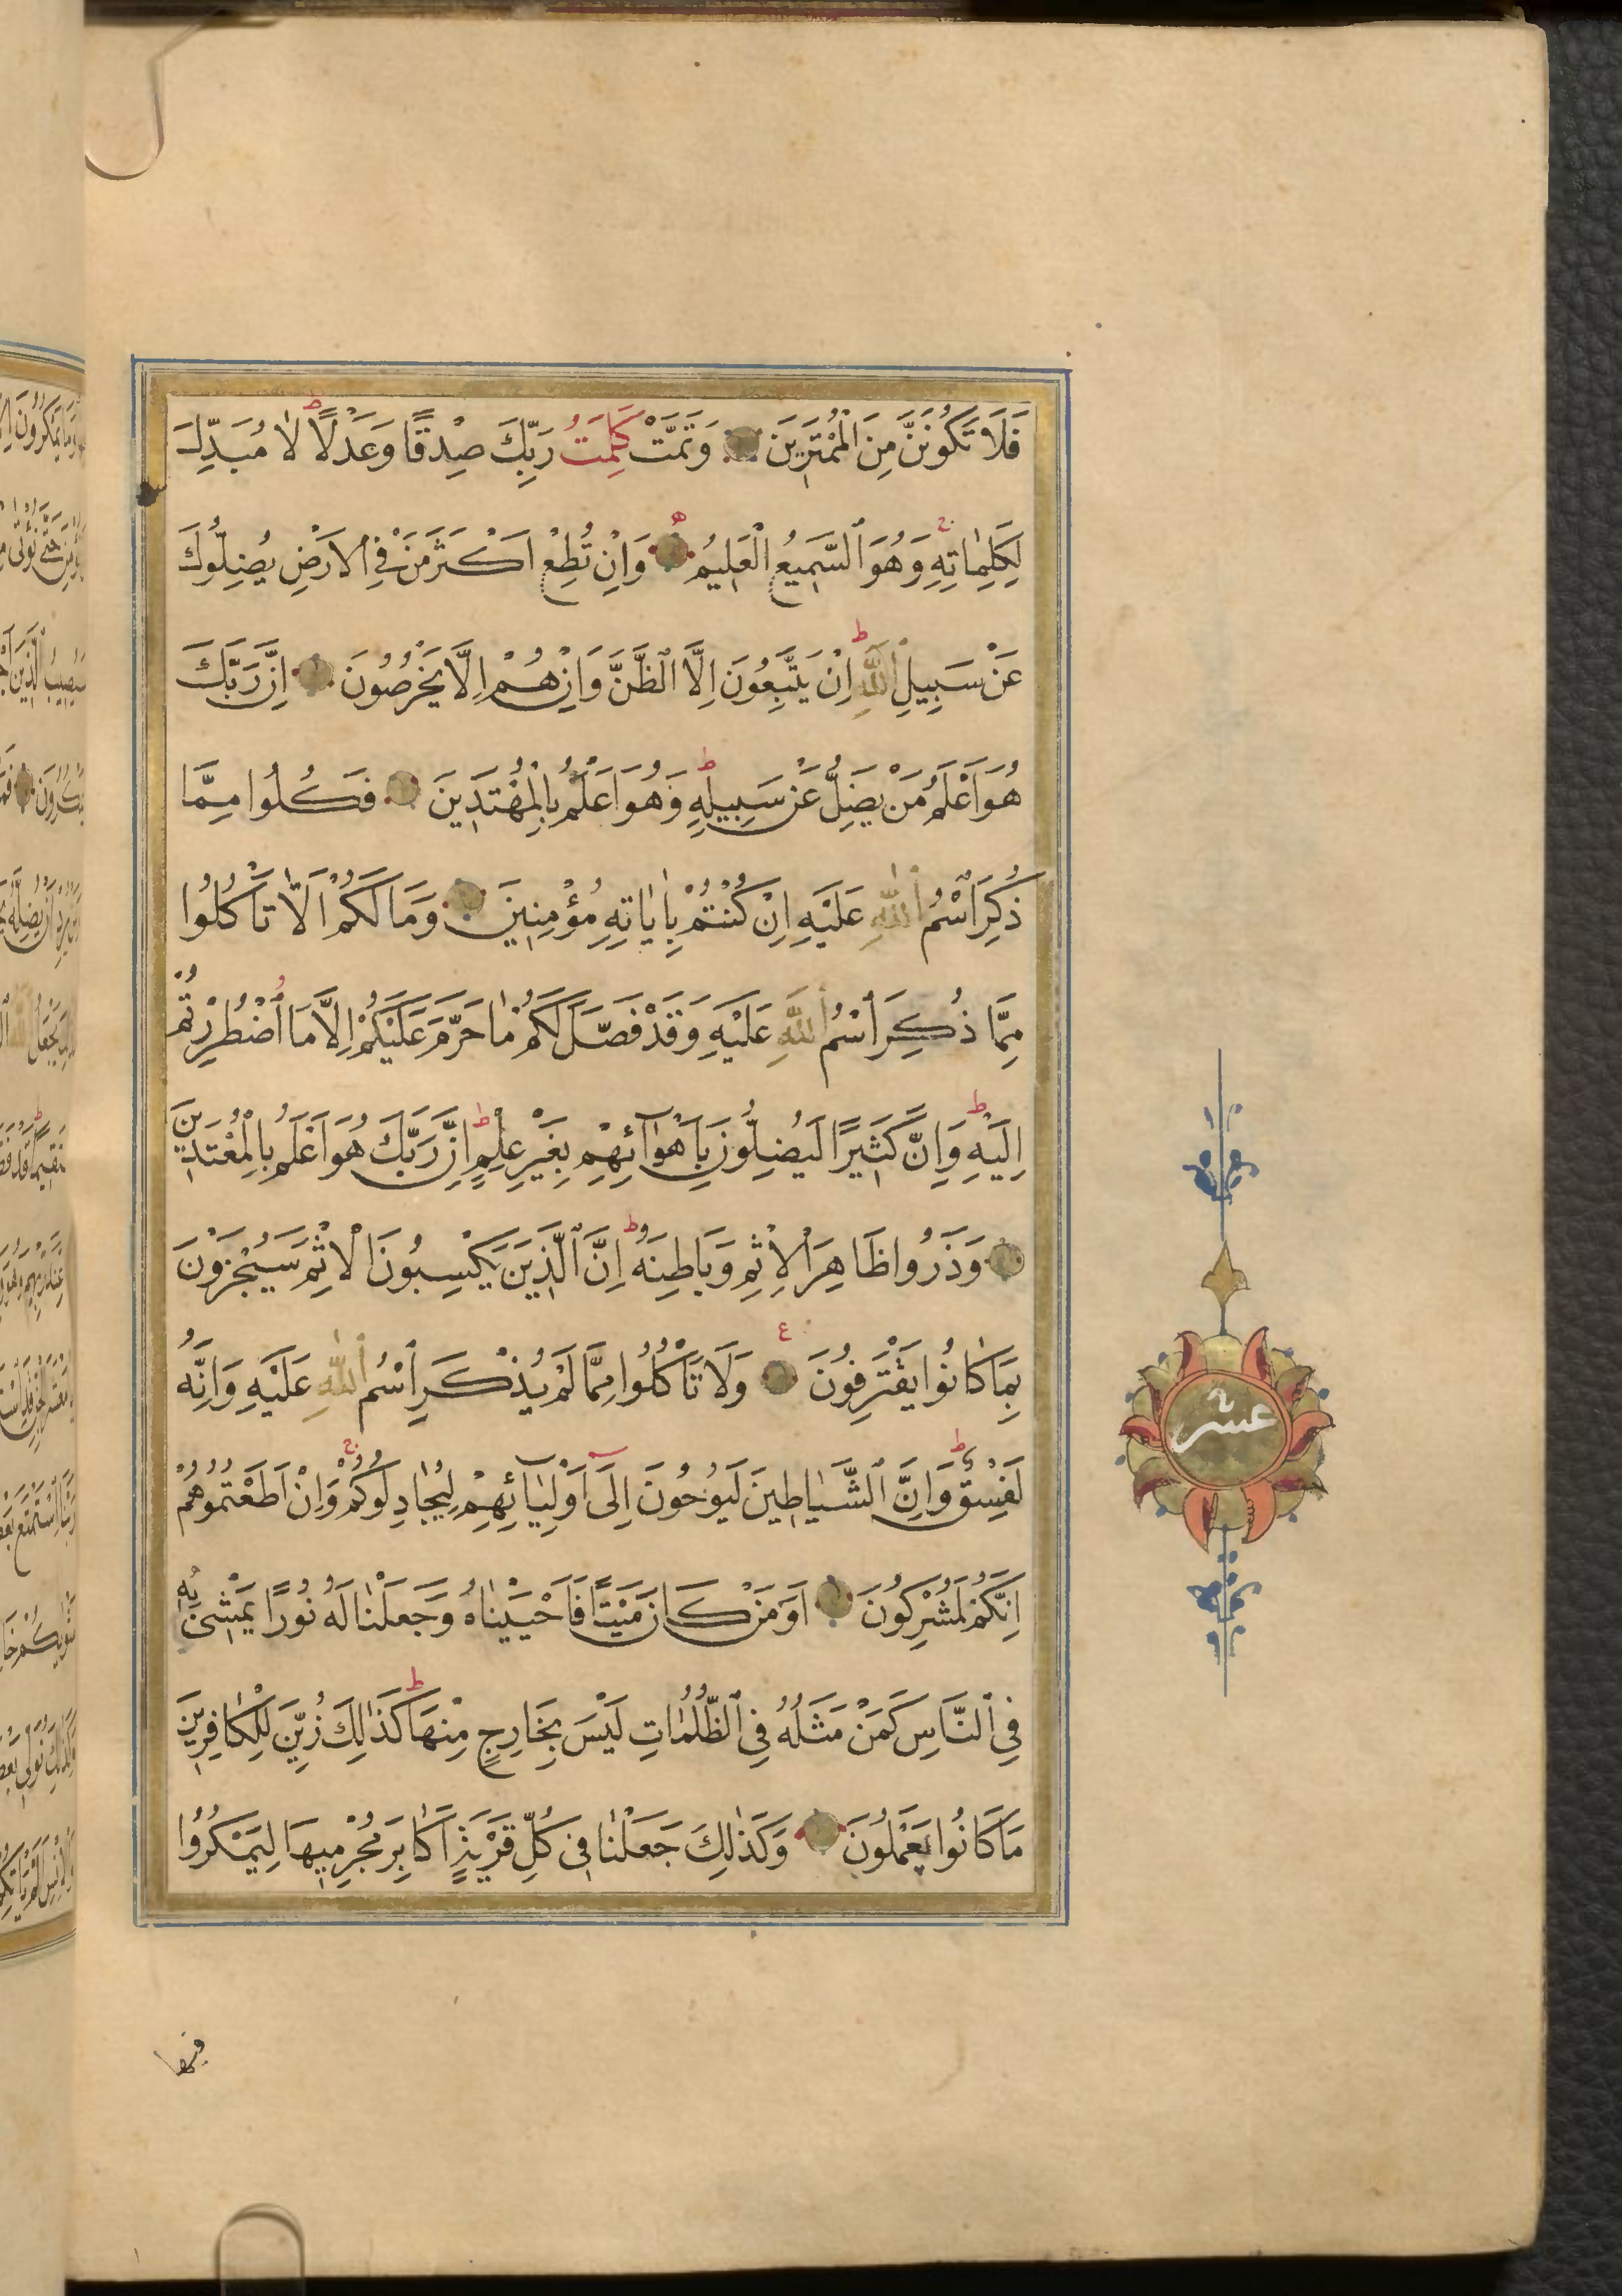 فَلَا تَكُونَنَّ مِنَ الْمُمْتَرِينَ وَتَمَّتْ كَلِمَتُ رَبِّكَ صِدْقًا وَعَدْلًا لَا مُبَدِّلَ
لِكَلِمَاتِهِ وَهُوَ السَّمِيعُ الْعَلِيمُ وَاِنْ تُطِعْ اَكْثَرَ مَنْ فِي الْاَرْضِ يُضِلُّوكَ
عَنْ سَبِيلِ اللَّهِ اِنْ يَتَّبِعُونَ اِلَّا الظَّنَّ وَاِنْ هُمْ اِلَّا يَخْرُصُونَ اِنَّ رَبَّكَ
هُوَ اَعْلَمُ مَنْ يَضِلُّ عَنْ سَبِيلِهِ وَهُوَ اَعْلَمُ بِالْمُهْتَدِينَ فَكُلُوا مِمَّا
ذُكِرَ اسْمُ اللَّهِ عَلَيْهِ اِنْ كُنْتُمْ بِاٰيَاتِهِ مُؤْمِنِينَ وَمَا لَكُمْ اَلَّا تَأْكُلُوا
مِمَّا ذُكِرَ اسْمُ اللَّهِ عَلَيْهِ وَقَدْ فَصَّلَ لَكُمْ مَا حَرَّمَ عَلَيْكُمْ اِلَّا مَا اضْطُرِرْتُمْ
اِلَيْهِ وَاِنَّ كَثِيرًا لَيُضِلُّونَ بِاَهْوَآئِهِمْ بِغَيْرِ عِلْمٍ اِنَّ رَبَّكَ هُوَ اَعْلَمُ بِالْمُعْتَدِينَ
وَذَرُوا ظَاهِرَ الْاِثْمِ وَبَاطِنَهُ اِنَّ الَّذِينَ يَكْسِبُونَ الْاِثْمَ سَيُجْزَوْنَ
بِمَا كَانُوا يَقْتَرِفُونَ وَلَا تَأْكُلُوا مِمَّا لَمْ يُذْكَرِ اسْمُ اللَّهِ عَلَيْهِ وَاِنَّهُ
لَفِسْقٌ وَاِنَّ الشَّيَاطِينَ لَيُوحُونَ اِلَى اَوْلِيَآئِهِمْ لِيُجَادِلُوكُمْ وَاِنْ اَطَعْتُمُوهُمْ
اِنَّكُمْ لَمُشْرِكُونَ اَوَمَنْ كَانَ مَيْتًا فَاَحْيَيْنَاهُ وَجَعَلْنَا لَهُ نُورًا يَمْشِي بِهِ
فِي النَّاسِ كَمَنْ مَثَلُهُ فِي الظُّلُمَاتِ لَيْسَ بِخَارِجٍ مِنْهَا كَذَالِكَ زُيِّنَ لِلْكَافِرِينَ
مَا كَانُوا يَعْمَلُونَ وَكَذَلِكَ جَعَلْنَا فِي كُلِّ قَرْيَةٍ اَكَابِرَ مُجْرِمِيهَا لِيَمْكُرُوا
عشر
فيها